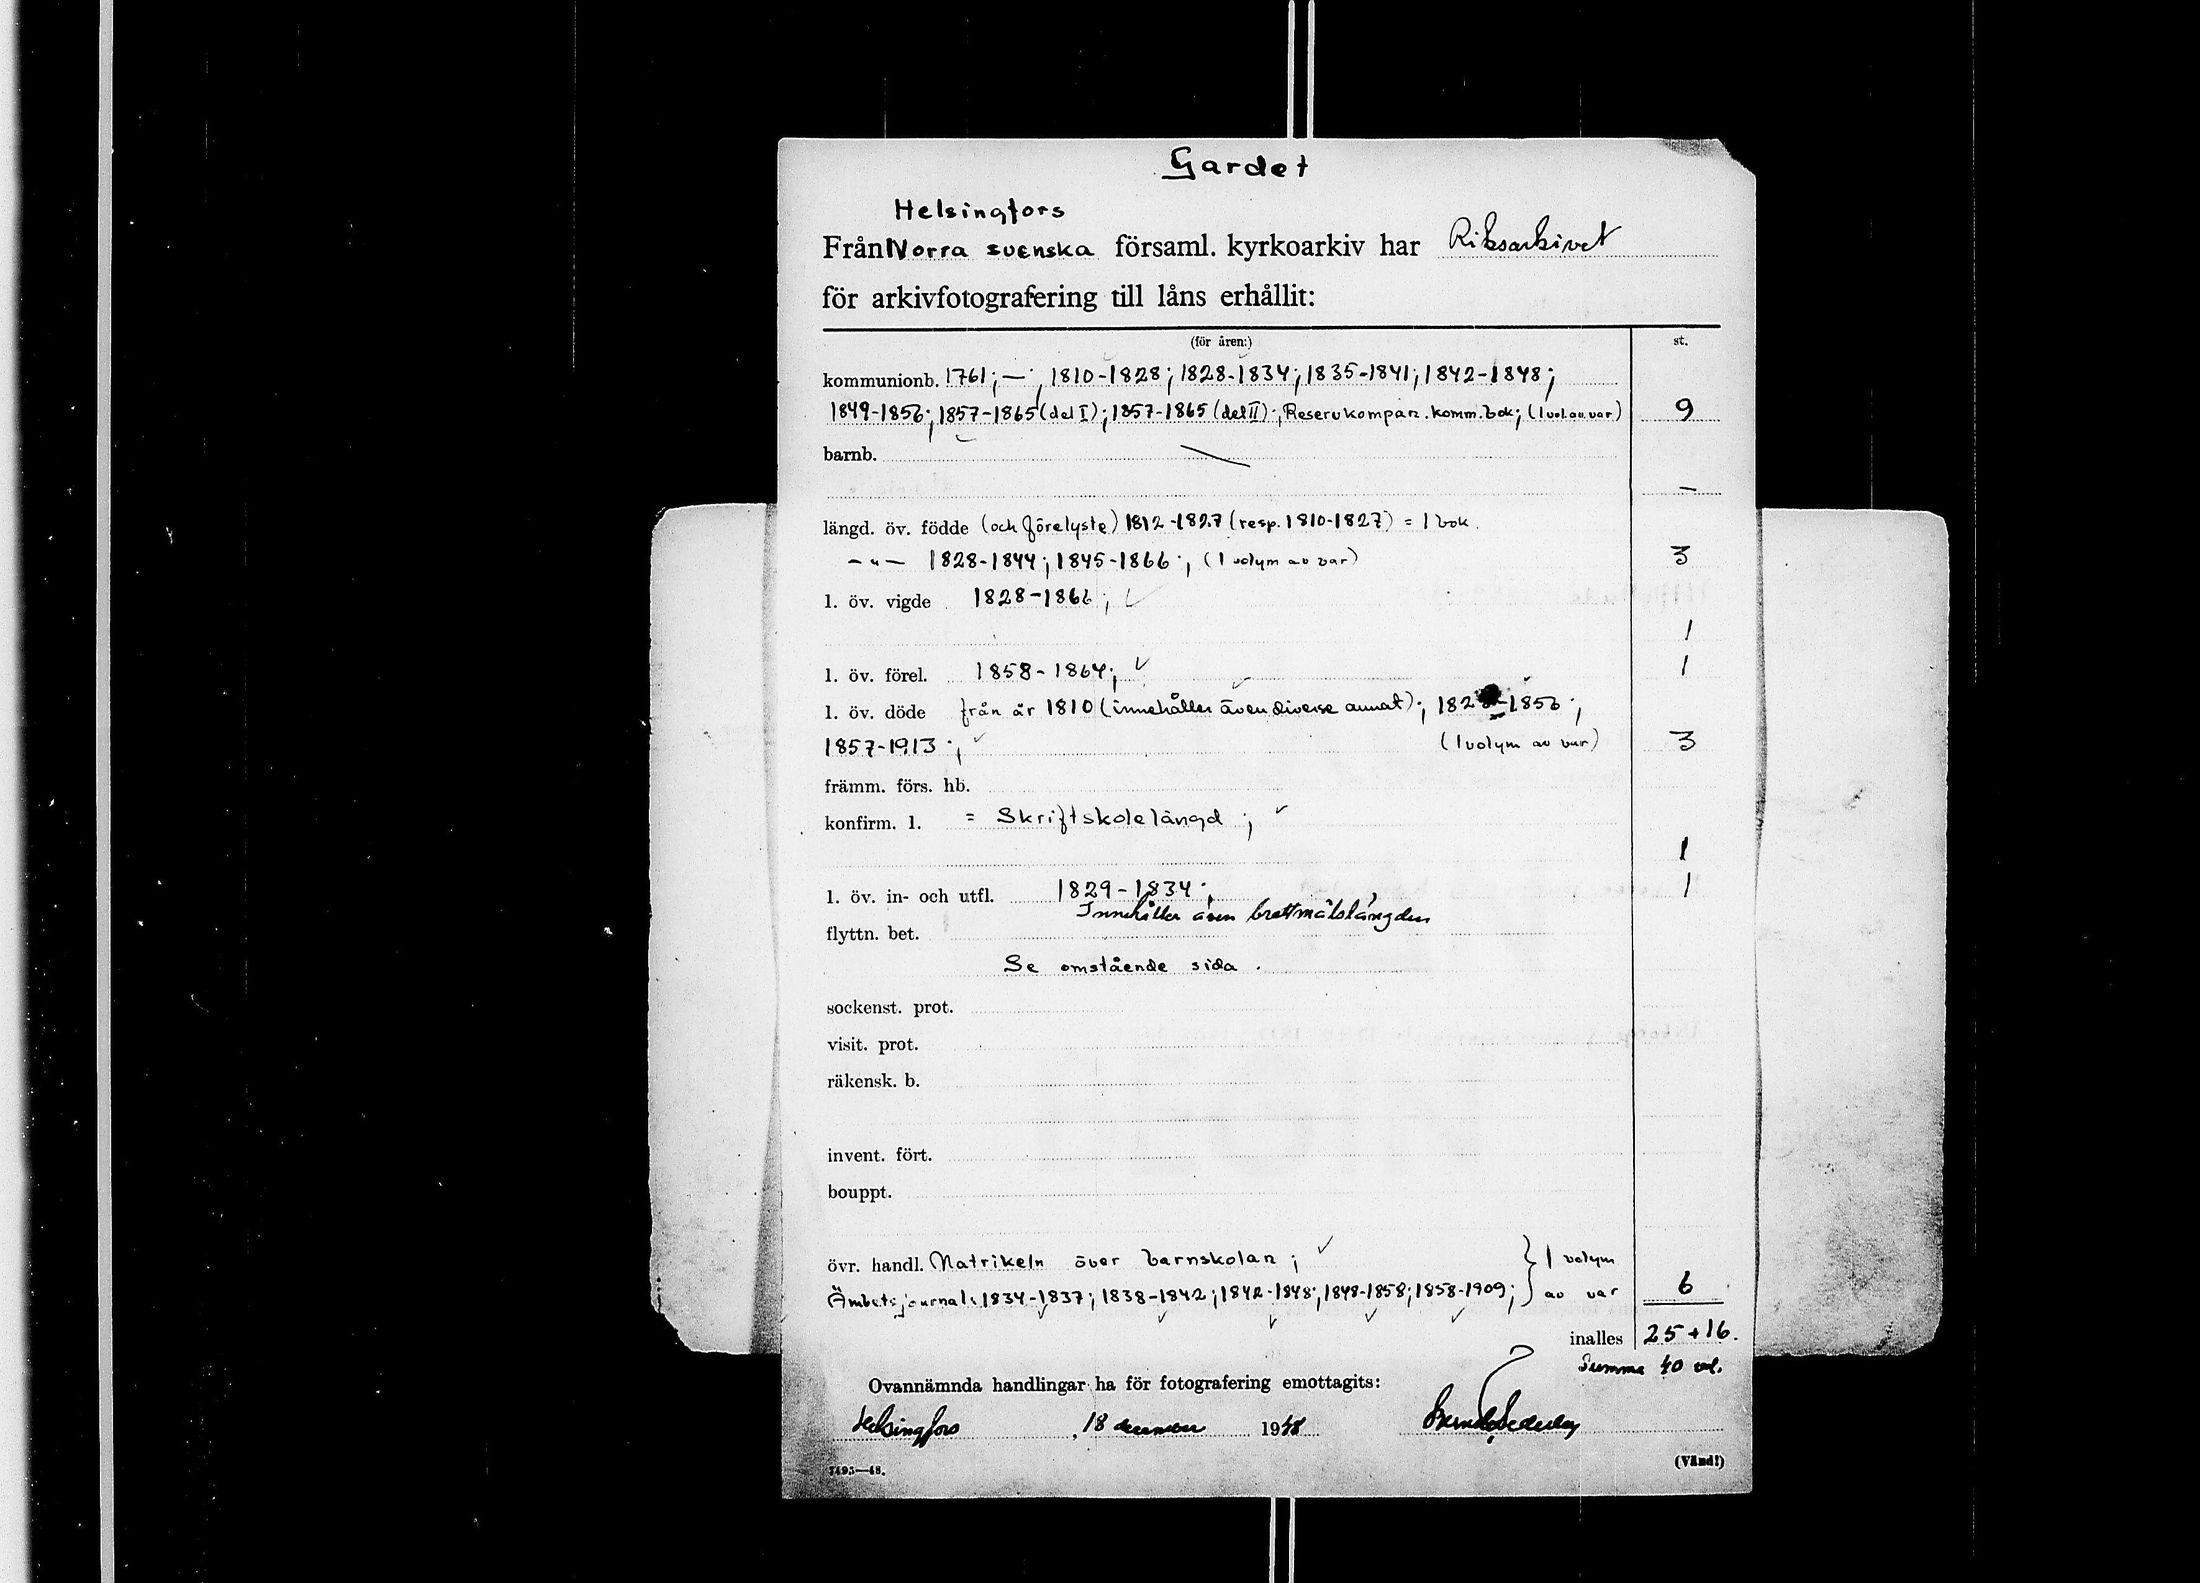 Gardet
Helsingfors
Från Norra svenska församl. kyrkoarkiv har Riksarkivet
för arkivfotografering till låns erhållit:
(för åren:) st.
kommunionb. 1761; —; 1810-1828; 1828-1834; 1835-1841; 1842-1848;
1849-1856; 1857-1865 (del I); 1857-1865 (del II); Reservkompan. komm. bok; (1 vol. av var) 9
barnb. —
längd. öv. födde (och förelyste) 1812-1827 (resp. 1810-1827) = 1 bok.
— " — 1828-1844; 1845-1866; (1 volym av var) 3
l. öv. vigde 1828-1866;
1
l. öv. förel. 1858-1864; 1
l. öv. döde från år 1810 (innehåller även diverse annat); 1828-1856;
1857-1913; (1 volym av var) 3
främm. förs. hb.
konfirm. l. = Skriftskolelängd;
1
l. öv. in- och utfl. 1829-1834; 1
Innehåller även brottmålslängden
flyttn. bet.
Se omstående sida.
sockenst. prot.
visit. prot.
räkensk. b.
invent. fört.
bouppt.
övr. handl. Matrikeln över barnskolan; } 1 volym
Ämbetsjournal: 1834-1837; 1838-1842; 1842-1848; 1848-1858; 1858-1909; } av var 6
inalles 25 + 16.
Summa 40 vol.
Ovannämnda handlingar ha för fotografering emottagits:
Helsingfors, 18 december 1948
7495—48. (Vänd!)